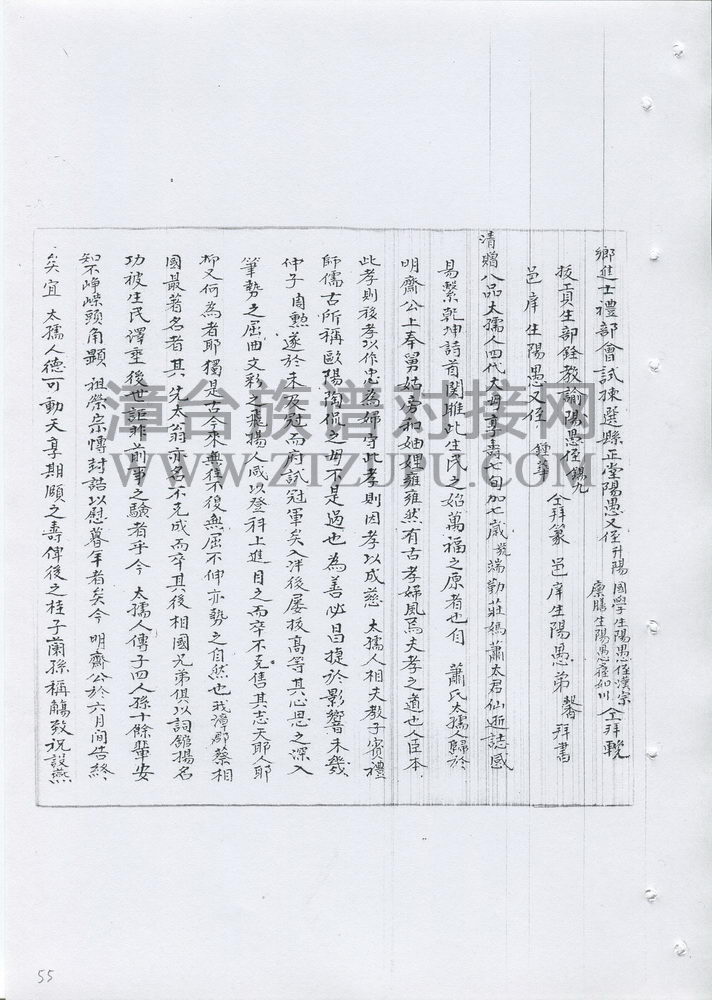 鄉進士禮部會試揀選縣正堂陽愚又侄升陽 國學生陽愚侄漢宗 廩膳生陽愚侄如川 仝拜輓
拔貢生部銓教諭陽愚侄錫九
邑庠生陽愚又侄鍾華 仝拜篆 邑庠生陽愚弟馨拜書
清贈八品太孺人四代大母享壽七旬加七歲號端勤莊媽蕭太君仙逝誌感
易繫乾坤詩首関雎此生民之始萬福之原者也自 蕭氏太孺人歸於
明齋公上奉舅姑旁和妯娌雍雍然有古孝婦風焉夫孝之道也人臣本
此孝則移孝以作忠為婦守此孝則因孝以成慈 太孺人相夫教子有禮
師儒古所稱歐陽陶侃之母不是過也為善必昌捷於影響未幾
仲子周勲遂於未及冠而府試冠軍矣入泮後屡拔高等其心思之深入
筆勢之屈曲文彩之飛揚人咸以登科上進目之而卒不克售其志天耶人耶
抑又何為者耶獨是古今來無往不復無屈不伸亦勢之自然也我漳郡蔡相
國最著名者其先太翁亦名不克成而卒其後相國兄弟俱以詞館揚名
功被生民澤垂後世詎非前事之驗者乎今 太孺人傳子四人孫十餘輩安
知不崢嶸頭角顯 祖榮宗慱封誥以慰暮年者矣今 明齋公於六月間告終
矣宜 太孺人德可動天享期頤之壽俾後之桂子蘭孫稱觴致祝設燕
漳台族谱对接网
WWW.ZTZUPU.COM
55